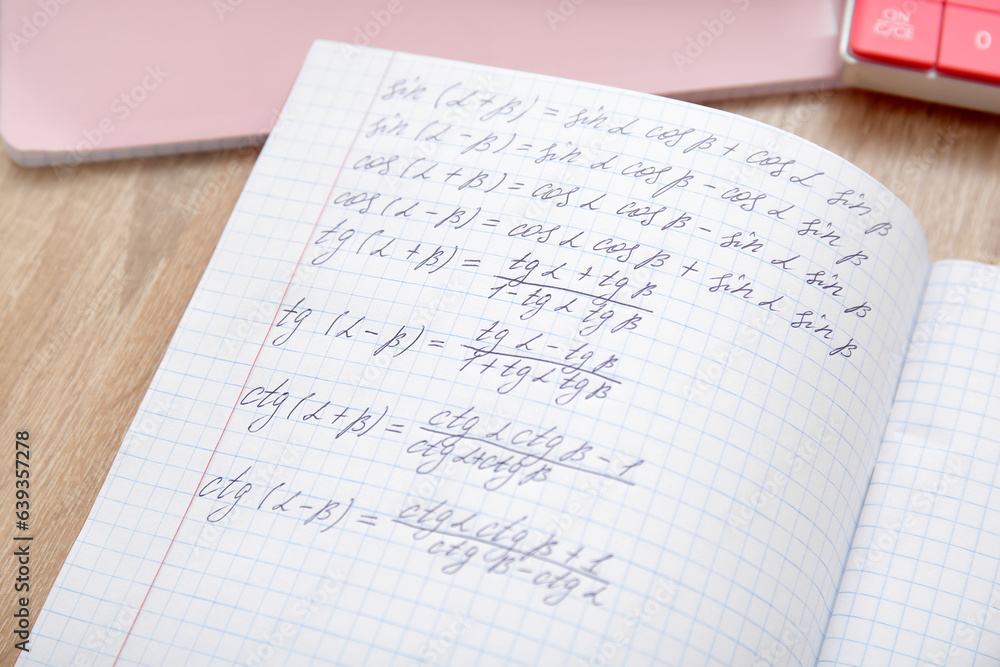 sin (α+β) = sin α cos β + cos α sin β
sin (α-β) = sin α cos β - cos α sin β
cos (α+β) = cos α cos β - sin α sin β
cos (α-β) = cos α cos β + sin α sin β
tg (α+β) = tg α + tg β
1-tg α tg β
tg (α-β) = tg α - tg β
1+tg α tg β
ctg (α+β) = ctg α ctg β - 1
ctg α+ctg β
ctg (α-β) = ctg α ctg β + 1
ctg β-ctg α
ON
C/CE
0
Adobe Stock | #639357278